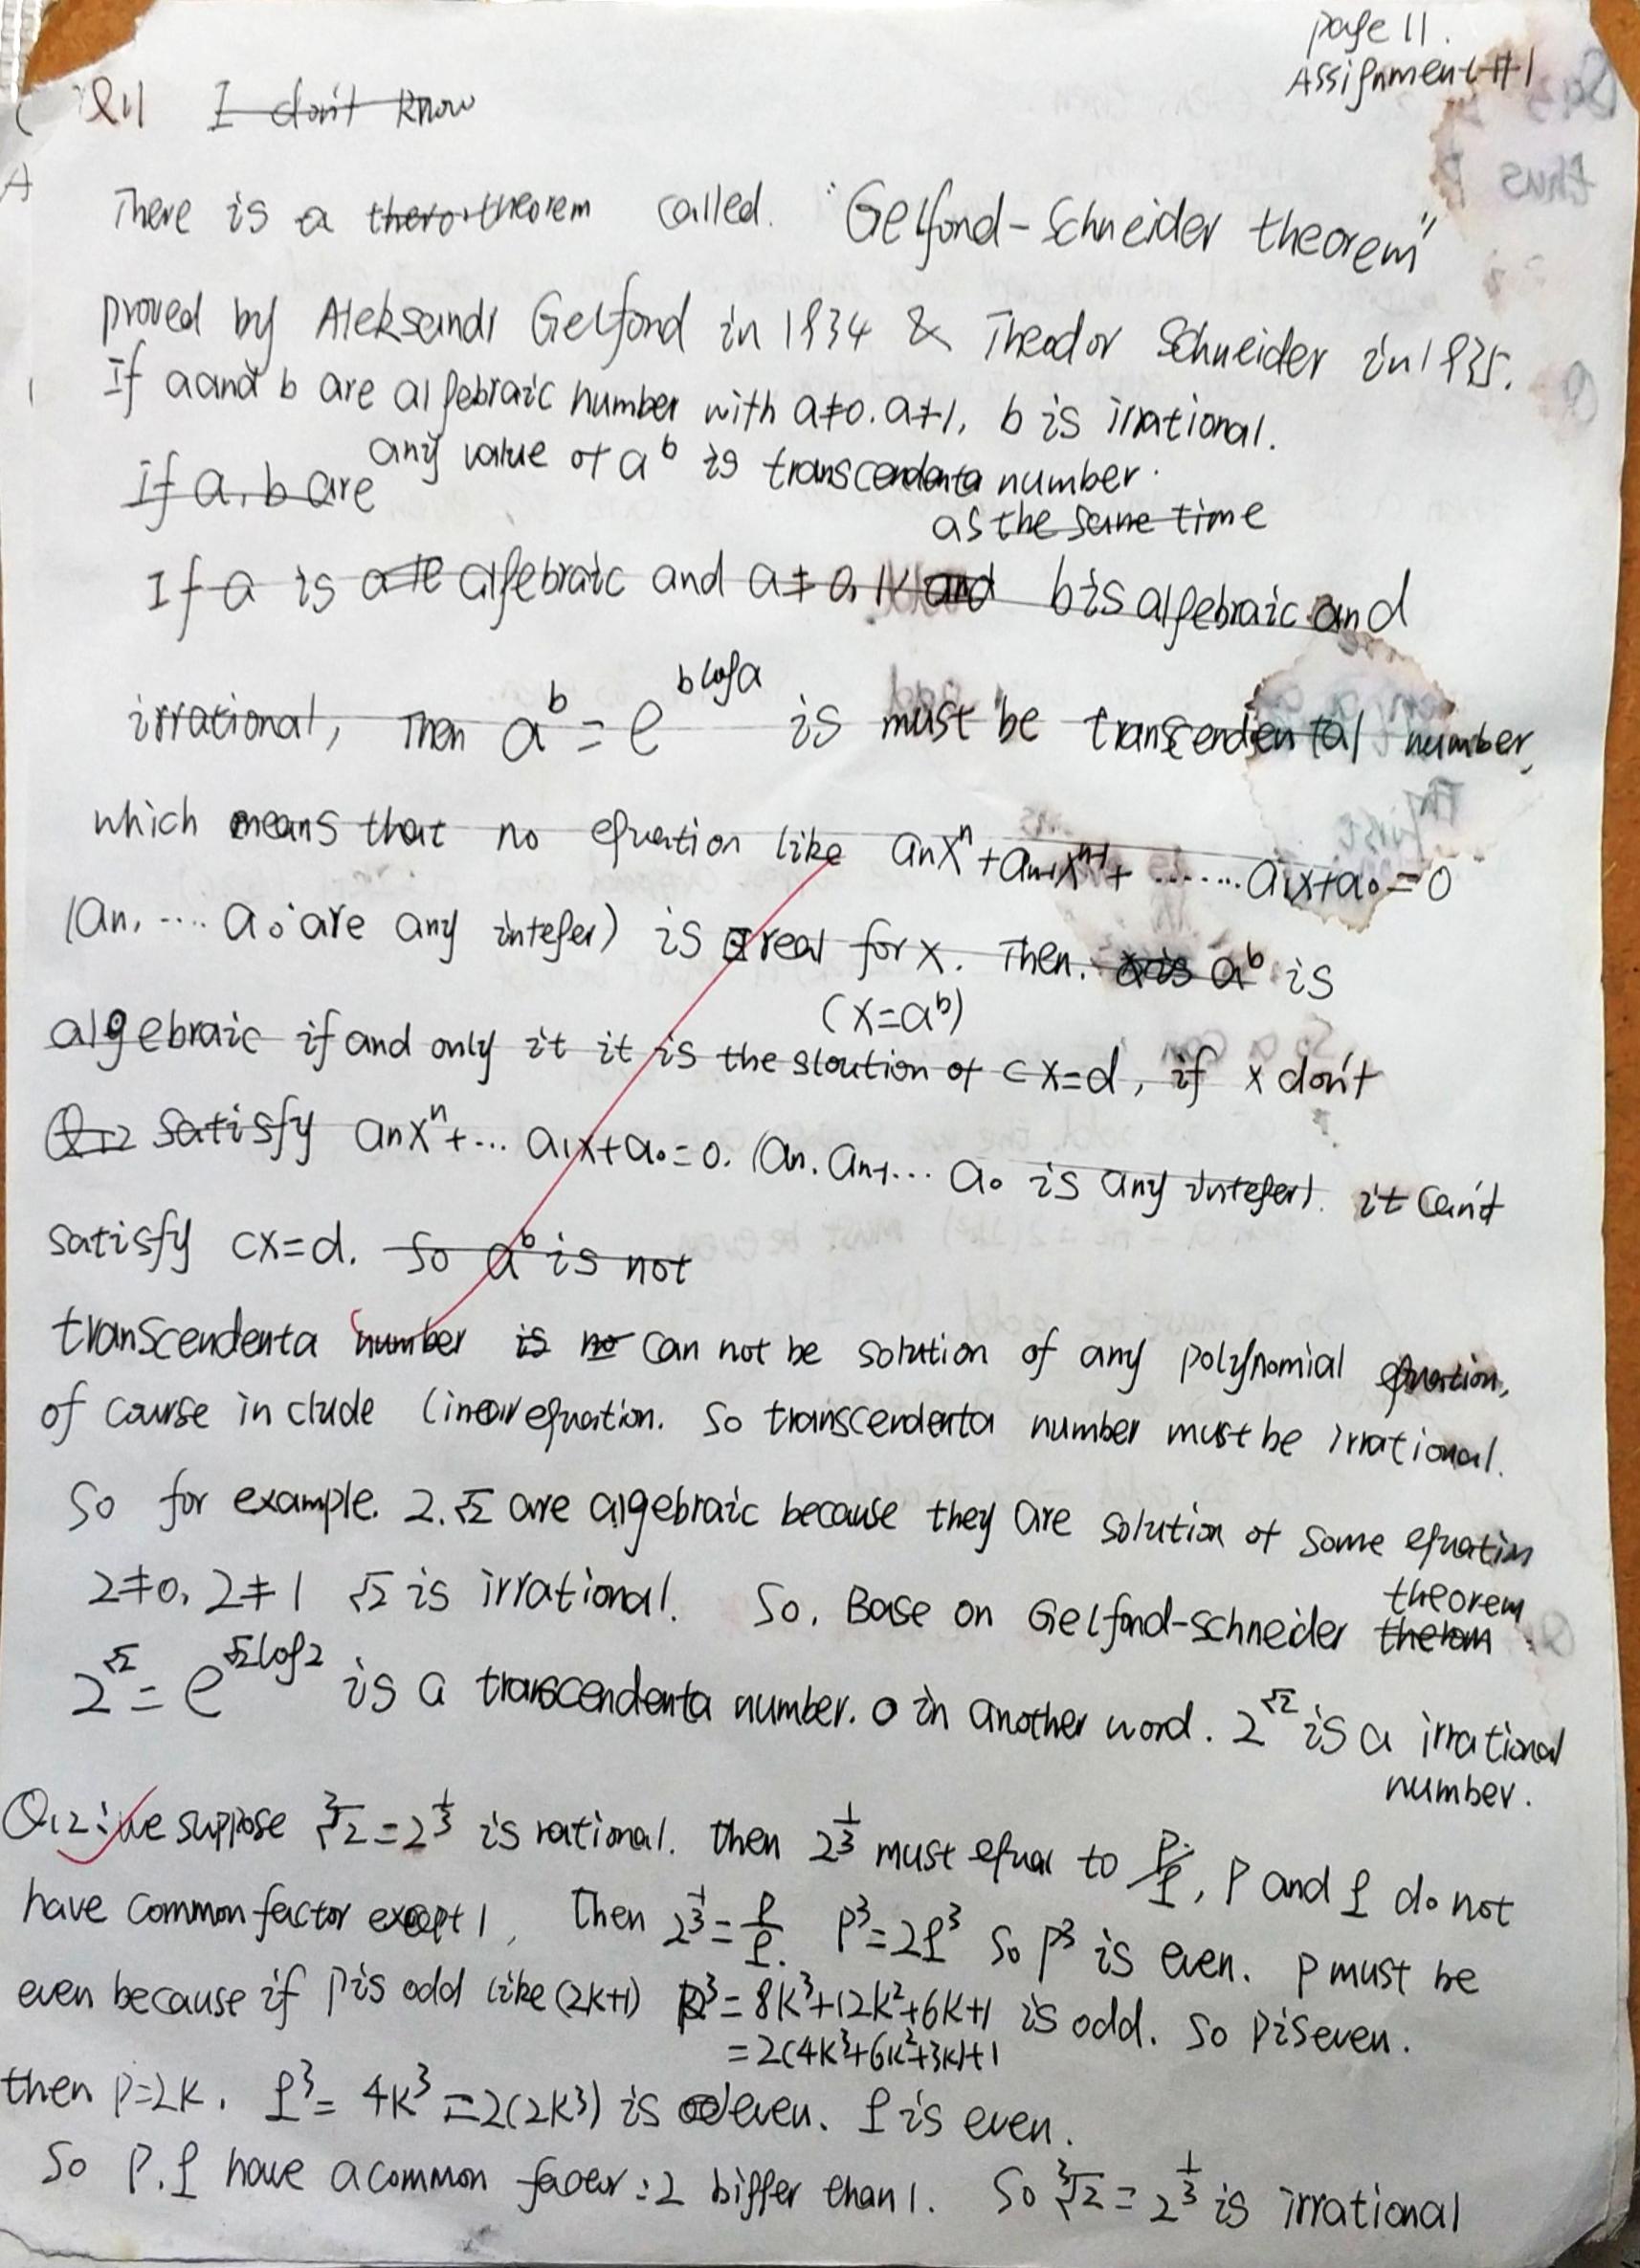 page 11.
Assignment #1
Q11 I don't know
There is a theorem called. "Gelfond-Schneider theorem"
proved by Aleksandr Gelfond in 1934 & Theodor Schneider in 1935.
If a and b are algebraic number with a≠0. a≠1, b is irrational.
any value of a^b is transcendenta number.
If a, b are
as the same time
If a is algebraic and a≠0,1 and b is algebraic and
irrational, Then a^b = e^(b log a) is must be transcendental number,
which means that no equation like anx^n+an-1x^(n-1)+ ....... a1x+a0=0
(an, .... a0 are any integer) is real for x. Then. a^b is
(x=a^b)
algebraic if and only it it is the sloution of cx=d, if x don't
Q12 satisfy anx^n+... a1x+a0=0. (an. an-1... a0 is any integer). it can't
satisfy cx=d. So a^b is not
transcendenta number is no can not be solution of any polynomial equation,
of course in clude linear equation. So transcendenta number must be irrational.
So for example. 2.√2 are algebraic because they are solution of some equation
2≠0, 2≠1 √2 is irrational. So. Base on Gelfond-schneider theorem
2^√2 = e^(√2 log 2) is a transcendenta number. in another word. 2^√2 is a irrational
number.
Q12: We suppose ∛2=2^(1/3) is rational. then 2^(1/3) must equal to p/q, p and q do not
have common factor except 1, Then 2^(1/3)=p/q. p^3=2q^3 So p^3 is even. p must be
even because if p is odd like (2k+1) p^3=8k^3+12k^2+6k+1 is odd. So p is even.
=2(4k^3+6k^2+3k)+1
then p=2k. q^3=4k^3=2(2k^3) is even. q is even.
So p.q have a common facter:2 bigger than 1. So ∛2=2^(1/3) is irrational